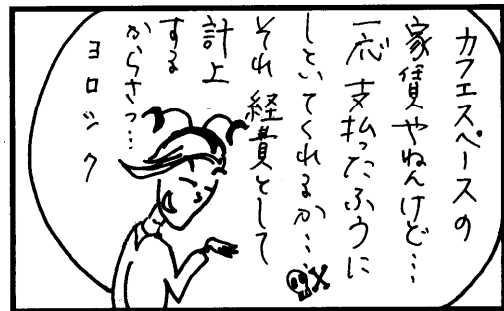 カフェスペースの
家賃やねんけど…
一応支払ったふうに
しといてくれるか…
それ経費として
計上
する
からさっ…
ヨロシク